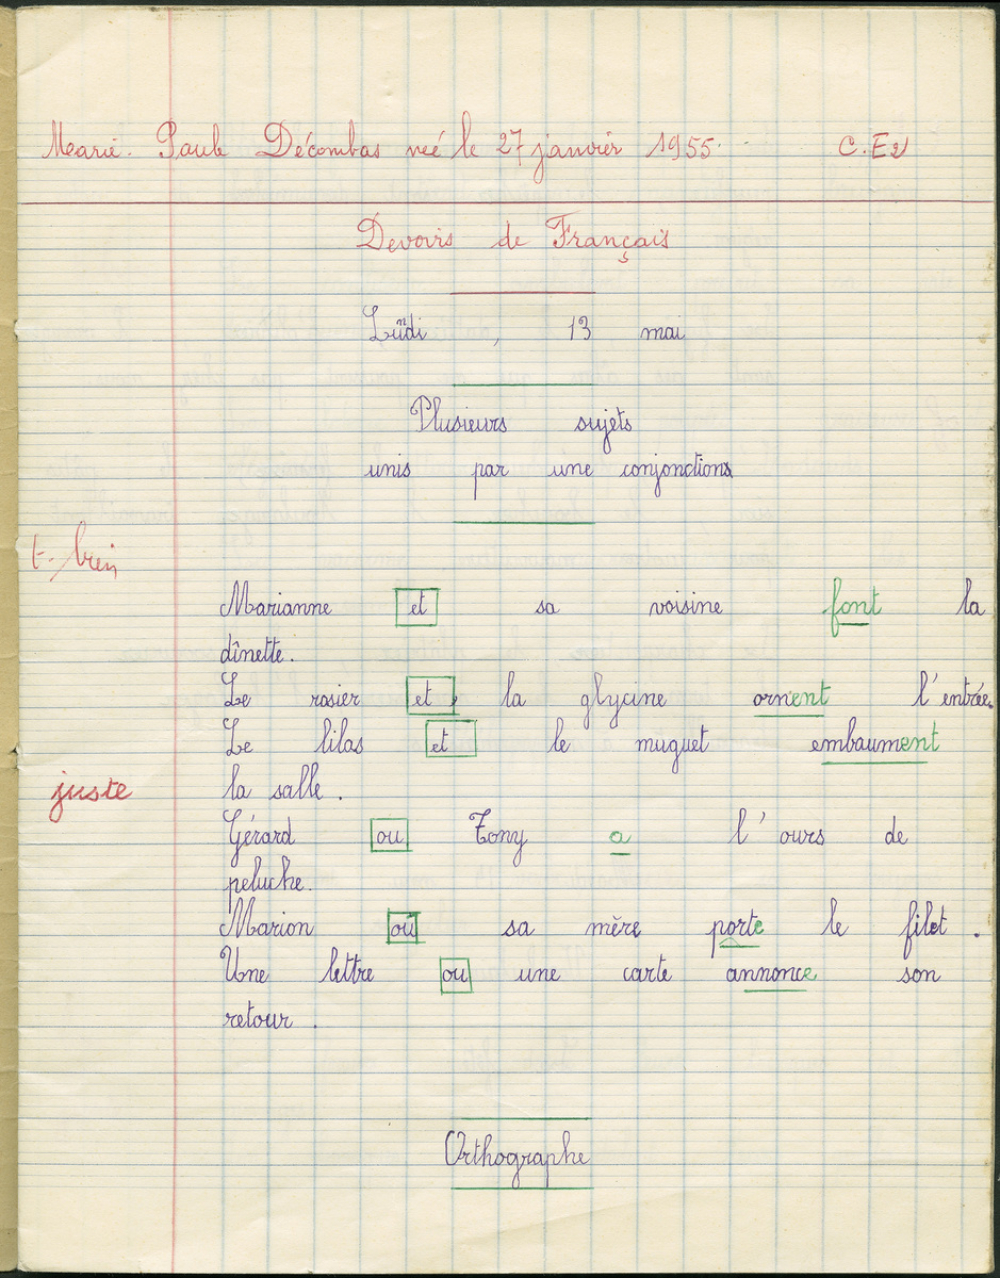 Marie. Paule Décombas né le 27 janvier 1955. C.E2
Devoirs de Français
Lundi, 13 mai
Plusieurs sujets
unis par une conjonctions
t. bien
Marianne et sa voisine font la
dînette.
Le rosier et la glycine ornent l'entrée.
Le lilas et le muguet embaument
juste
la salle.
Gérard ou Tony a l'ours de
peluche.
Marion ou sa mère porte le filet.
Une lettre ou une carte annonce son
retour.
Orthographe